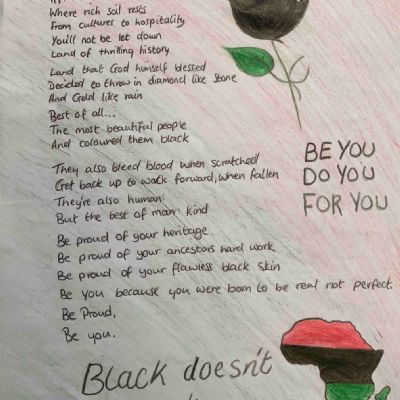 Where rich soil rests
From cultures to hospitality
You'll not be let down
Land of thrilling history
Land that God himself blessed
Decided to throw in diamond like stone
And Gold like rain
Best of all...
The most beautiful people
And coloured them black
They also bleed blood when scratched
Get back up to walk forward, when fallen
They're also human
But the best of man kind
Be proud of your heritage
Be proud of your ancestors hard work
Be proud of your flawless black skin
Be you because you were born to be real not perfect.
Be Proud,
Be you.
BE YOU
DO YOU
FOR YOU
Black doesn't